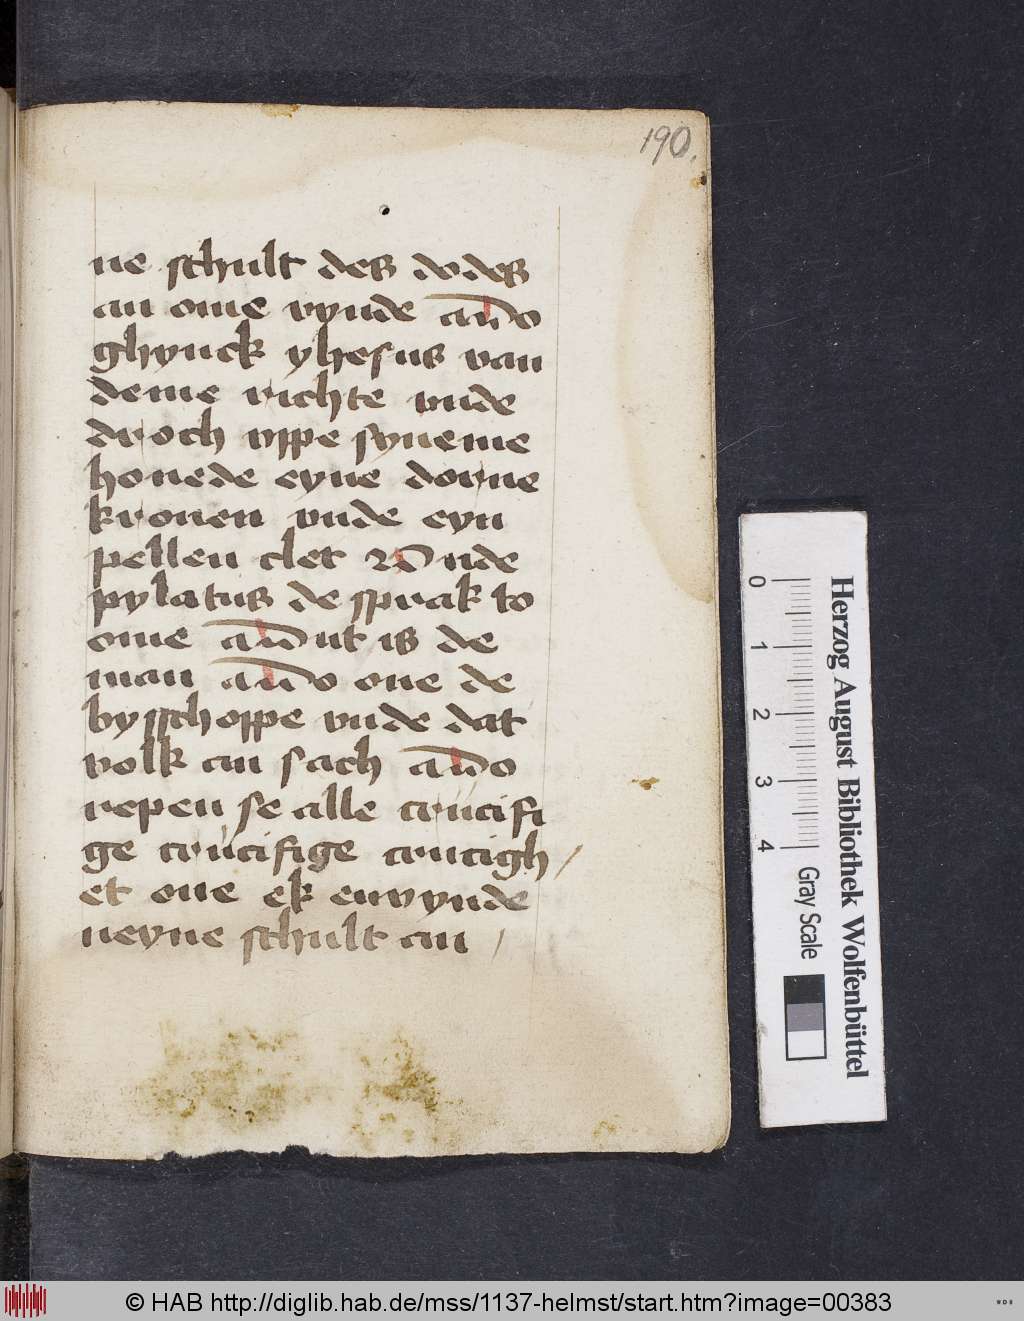 190.
ne schult des dodes
an ome vynde aū do
ghynck yhesus van
deme richte vnde
droch vppe syneme
houede eyne dorne
kronen vnde eyn
pellen clet vnde
pylatus de sprak to
ome aū dut is de
man aū do one de
bysschoppe vnde dat
volk an sach aū do
repen se alle crucifi
ge crucifige crucigh /
et one ek envynde
neyne schult an /
0 1 2 3 4
Gray Scale
Herzog August Bibliothek Wolfenbüttel
© HAB http://diglib.hab.de/mss/1137-helmst/start.htm?image=00383